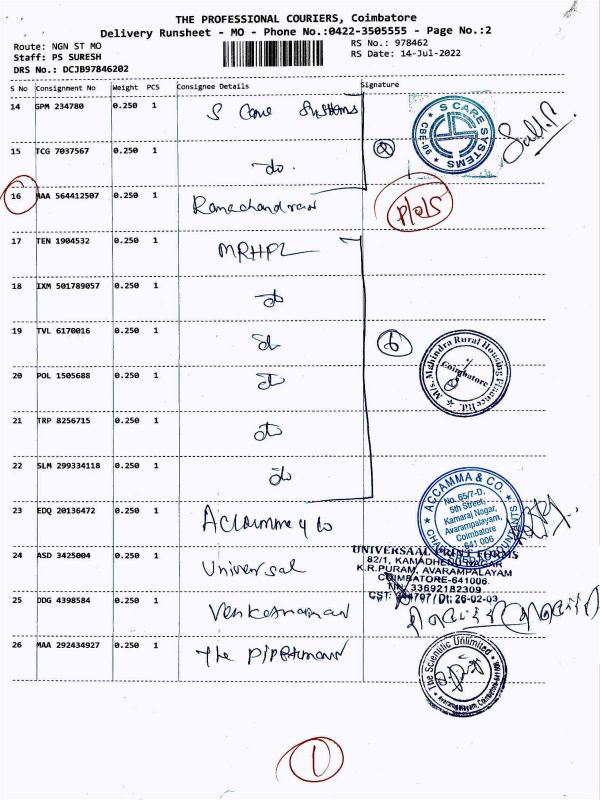 THE PROFESSIONAL COURIERS, Coimbatore
Delivery Runsheet - MO - Phone No.:0422-3505555 - Page No.:2
Route: NGN ST MO
Staff: PS SURESH
DRS No.: DCJB97846202
RS No.: 978462
RS Date: 14-Jul-2022
S No Consignment No Weight PCS Consignee Details Signature
14 GPM 234780 0.250 1 S Care Systems
S CARE SYSTEMS
CBE-90
15 TCG 7037567 0.250 1 do.
2
16 MAA 564412507 0.250 1 Ramachandran
17 TEN 1904532 0.250 1 MRHFL
18 IXM 501789057 0.250 1 do
19 TVL 6170016 0.250 1 do
6
M/s. Mahindra Rural Housing Finance Ltd.
Coimbatore
20 POL 1505688 0.250 1 do
21 TRP 8256715 0.250 1 do
22 SLM 299334118 0.250 1 do
ACCAMMA & CO.
No. 65/7-D,
5th Street,
Kamaraj Nagar,
Avarampalayam,
Coimbatore
641 006
CHARTERED ACCOUNTANTS
23 EDQ 20136472 0.250 1 Accamma & Co
24 ASD 3425004 0.250 1 Universal
UNIVERSAAL PRINT FORMS
82/1, KAMADHENU NAGAR
K.R.PURAM, AVARAMPALAYAM
COIMBATORE-641006
33692182309
CST: Dt: 26-02-03
25 DDG 4398584 0.250 1 Venkatraman
26 MAA 292434927 0.250 1 The
The Scientific Unlimited
Avarampalayam, Coimbatore
1